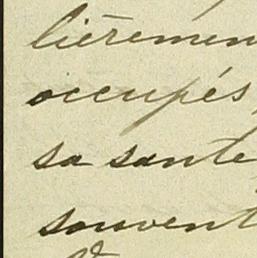 lièremen
occupés,
sa sante
souvent